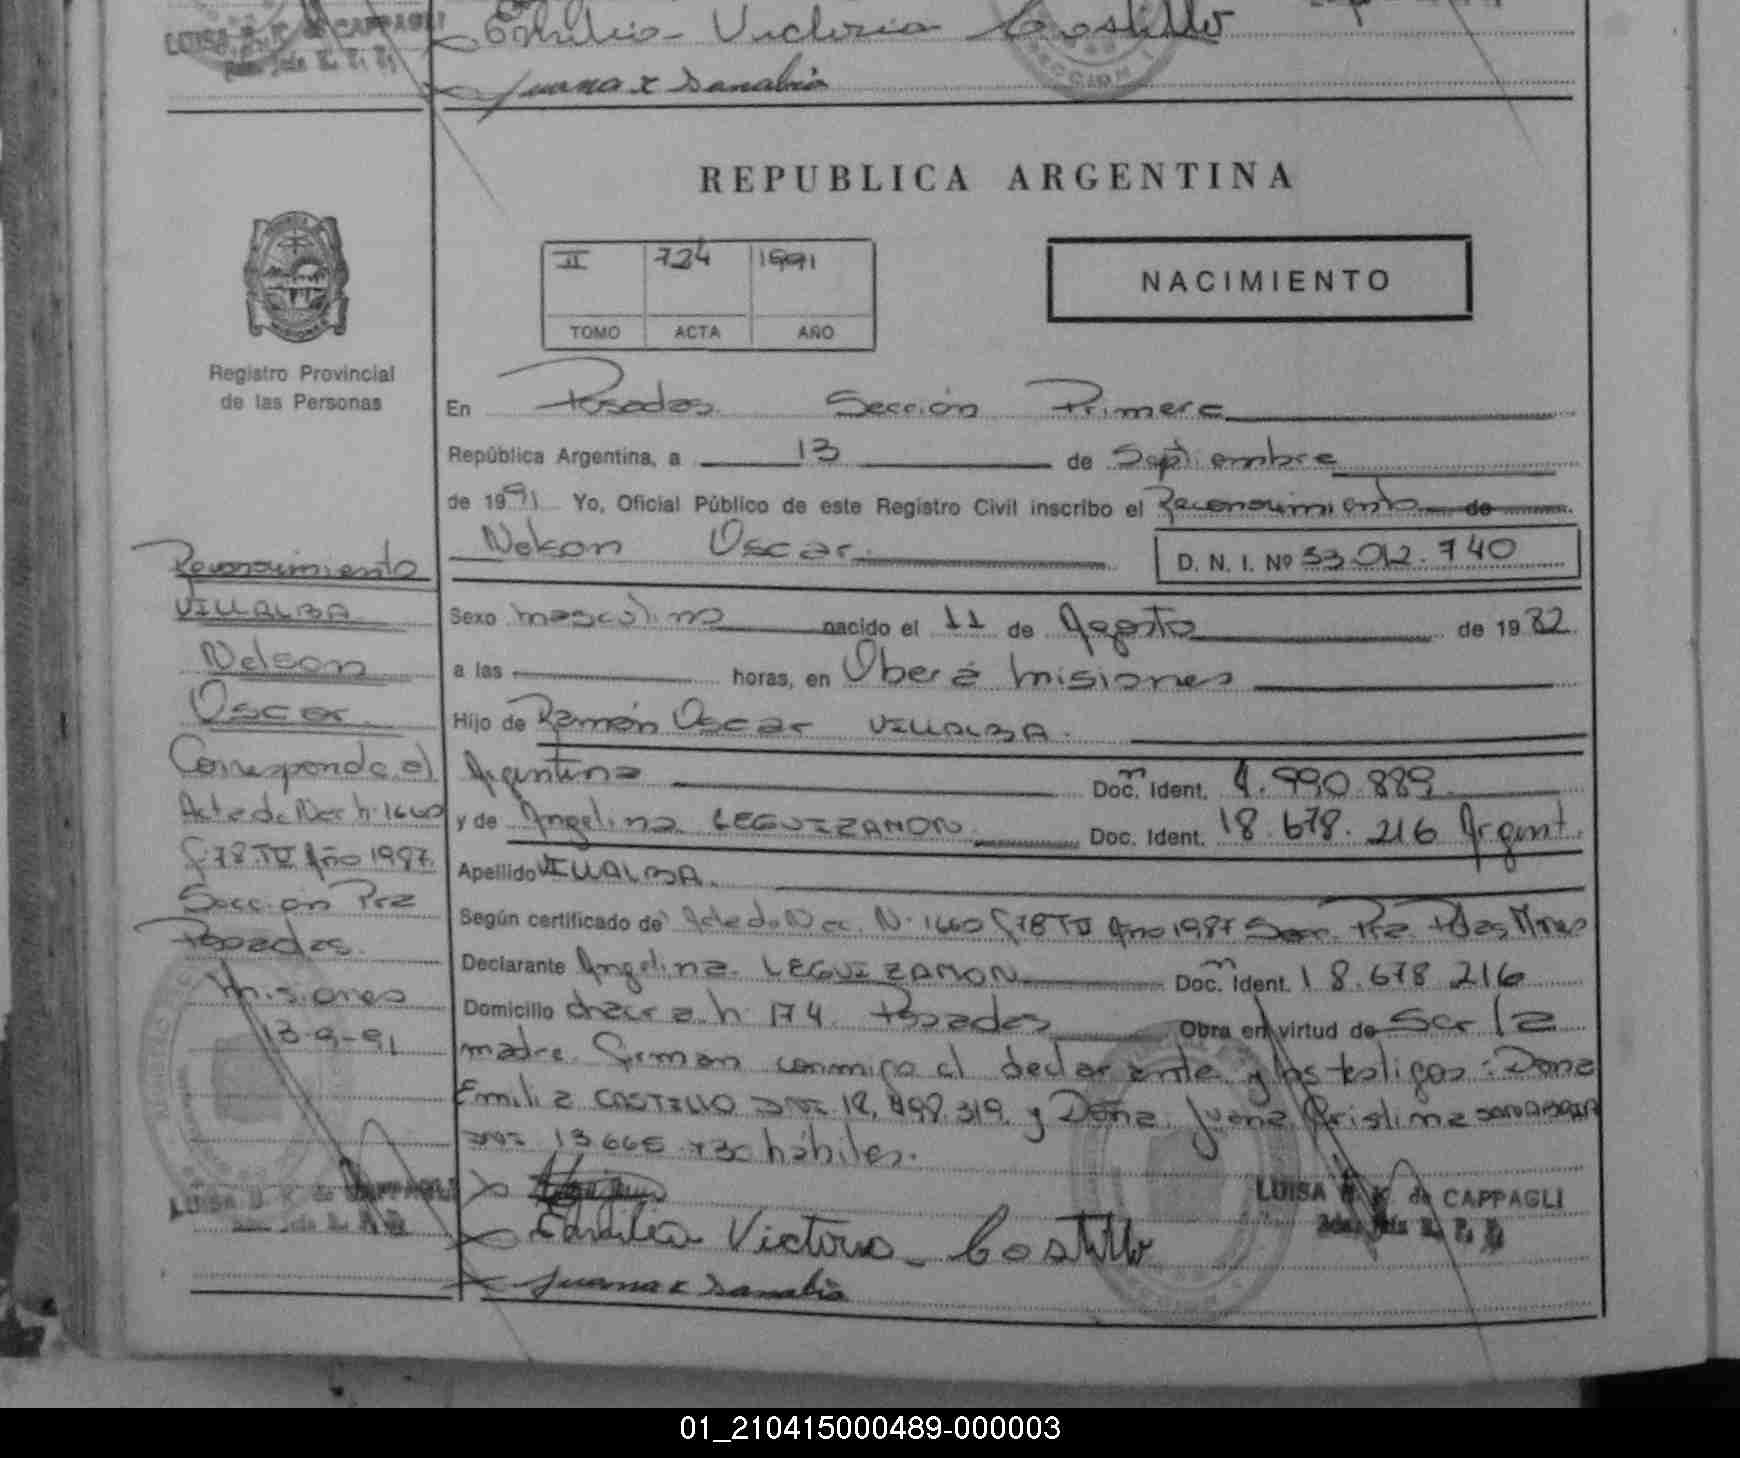 LUISA
de CAPPAGLI
Emilia Victoria Costillo
Juana C Sanabria
REPUBLICA ARGENTINA
II 724 1991
TOMO ACTA AÑO
NACIMIENTO
Registro Provincial
de las Personas
En Posadas Sección Primera
República Argentina, a 13 de Septiembre
de 1991 Yo, Oficial Público de este Registro Civil inscribo el Reconocimiento de
Nelson Oscar D. N. I. Nº 33.012.740
Sexo masculino nacido el 11 de Agosto de 1982
a las horas, en Oberá Misiones
Hijo de Ramón Oscar VILLALBA.
Argentina Doc. Ident. 990.889
y de Angelina LEGUIZAMON Doc. Ident. 18.678.216 Argent.
Apellido VILLALBA.
Según certificado de Acta de Nac. Nº 1660 F 78 TII Año 1987 Secc. Pra. Pdas Mnes
Declarante Angelina LEGUIZAMON Doc. Ident. 18.678.216
Domicilio chacra Nº 174 Posadas Obra en virtud de Ser la
madre. Firman conmigo el declarante y los testigos: Doña
Emilia CASTILLO DNI 498.319 y Doña Juana Cristina SANABRIA
DNI 13.665.730 hábiles.
Reconocimiento
VILLALBA
Nelson
Oscar
Corresponde al
Acta de Nac Nº 1660
F 78 TII Año 1987
Sección Pra
Posadas.
Misiones
13-9-91
LUISA
de CAPPAGLI
LUISA H. K. de CAPPAGLI
Emilia Victoria Costillo
Juana C Sanabria
01_210415000489-000003